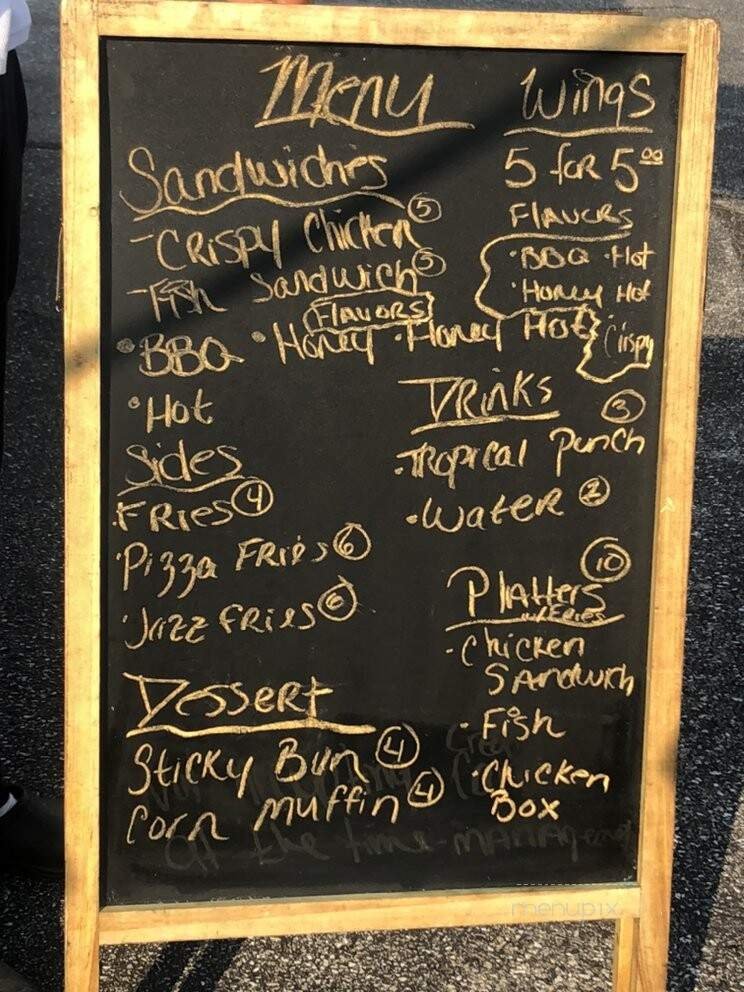 Menu
Sandwiches
- Crispy Chicken 5
- Fish Sandwich 5
Flavors
• BBQ • Honey • Honey Hot
• Hot
Sides
• Fries 4
• Pizza Fries 6
• Jazz Fries 6
Dessert
Sticky Bun 4
Corn muffin 4
Wings
5 for 5.00
Flavors
• BBQ • Hot
• Honey Hot
Crispy
Drinks
3
• Tropical Punch
• Water 2
10
Platters
w/Fries
• Chicken
Sandwich
• Fish
• Chicken
Box
off the time management
menupix